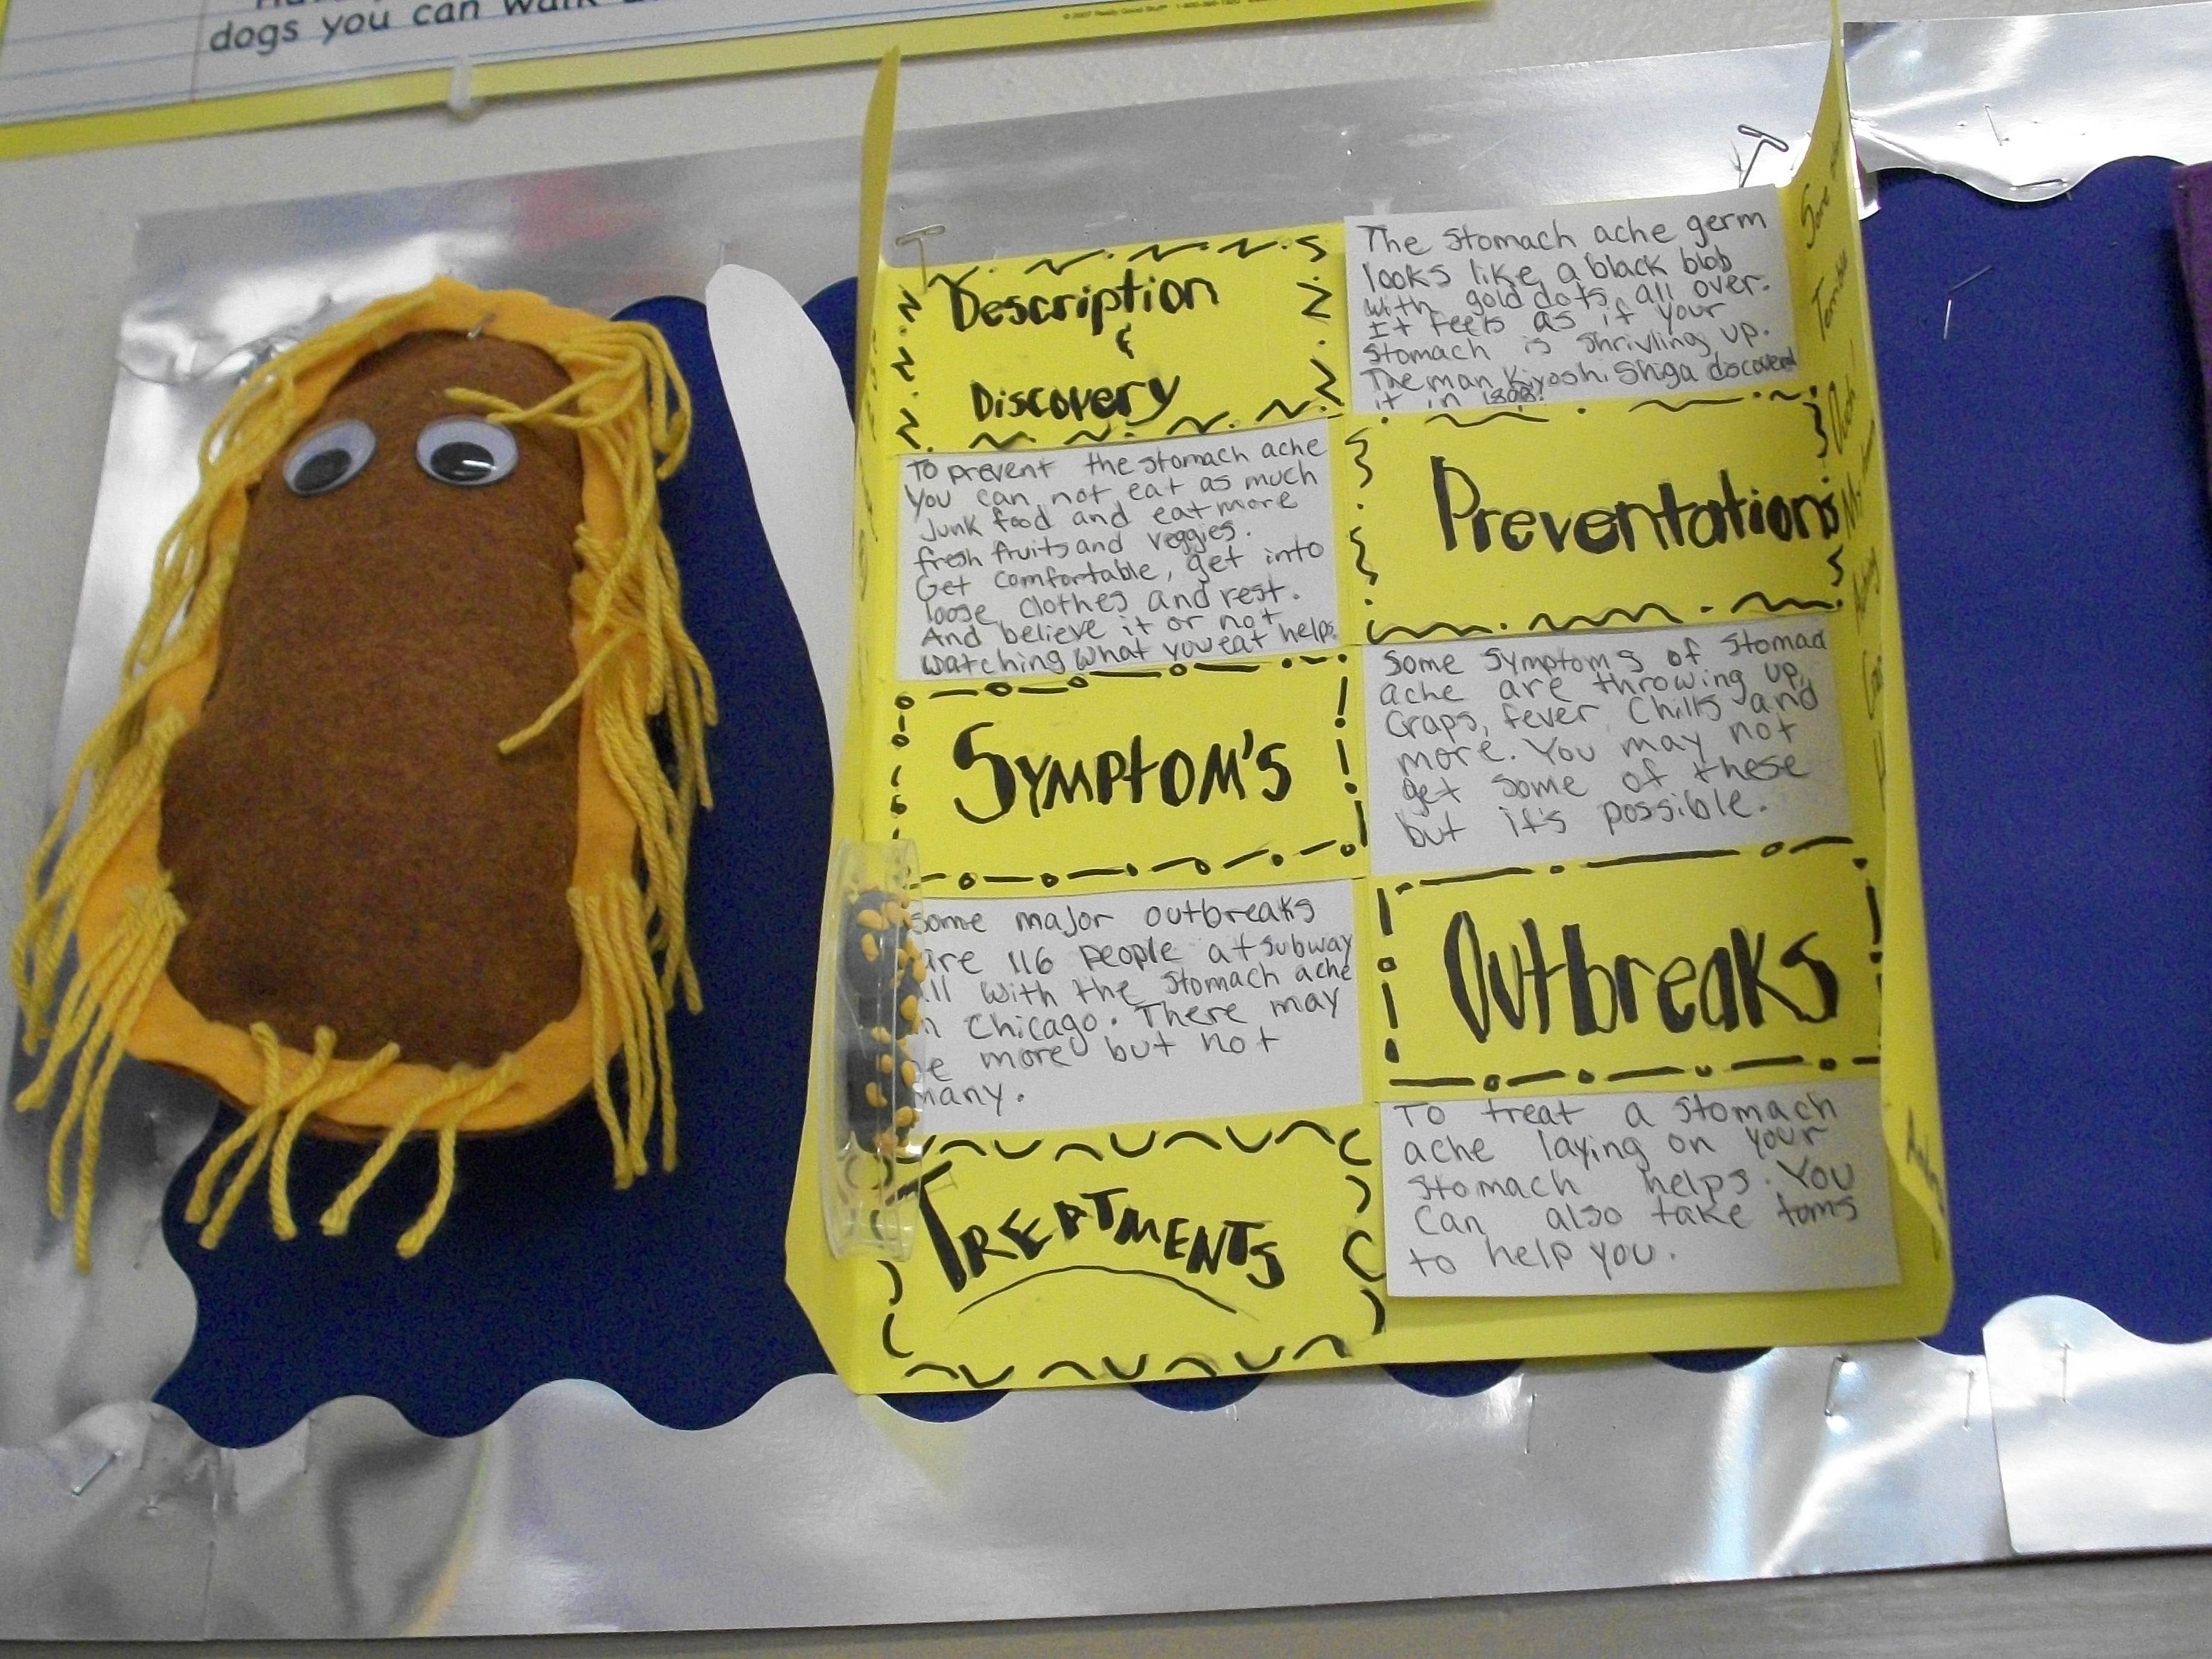 dogs you can walk
Description
&
Discovery
The stomach ache germ
looks like a black blob
with gold dots all over.
It feels as if your
stomach is shrivling up.
The man Kiyoshi Shiga discovered
it in 1898!
To prevent the stomach ache
You can not eat as much
Junk food and eat more
fresh fruits and veggies.
Get comfortable, get into
loose clothes and rest.
And believe it or not
watching what you eat helps.
Preventations
Symptom's
Some symptoms of stomac
ache are throwing up,
Craps, fever Chills and
more. You may not
get some of these
but it's possible.
Some major outbreaks
are 116 people at subway
ll with the stomach ache
n Chicago. There may
be more but not
many.
Outbreaks
Treatments
To treat a stomach
ache laying on your
stomach helps. You
can also take toms
to help you.